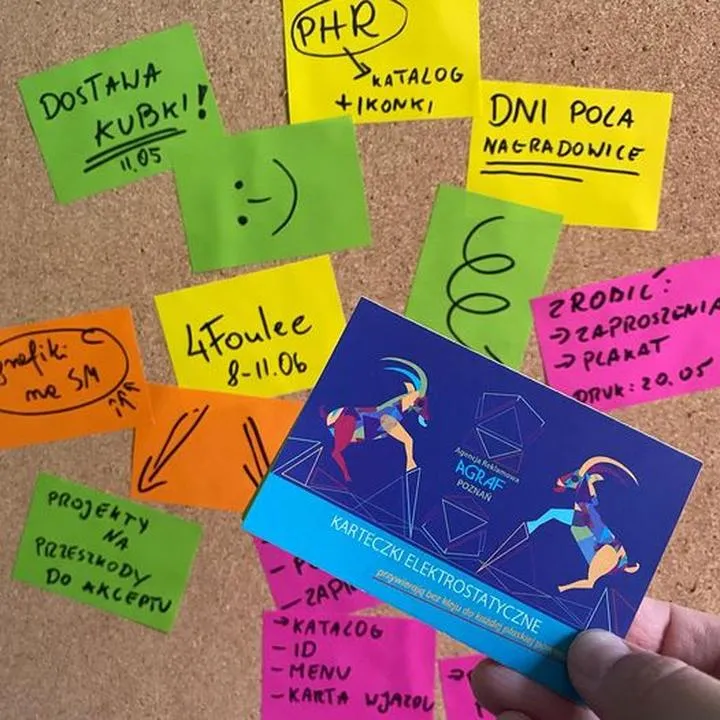 PHR
KATALOG
+ IKONKI
DOSTAWA
KUBKI!
11.05
DNI POLA
NAGRADOWICE
:-)
4Foulee
8-11.06
ZROBIĆ:
→ ZAPROSZENIA
→ PLAKAT
DRUK: 20.05
grafiki
na SM
Agencja Reklamowa
AGRAF
POZNAŃ
KARTECZKI ELEKTROSTATYCZNE
przywierają bez kleju do każdej płaskiej
PROJEKTY
NA
PRZESZKODY
DO AKCEPTU
→ KATALOG
- ID
- MENU
- KARTA WJAZDU